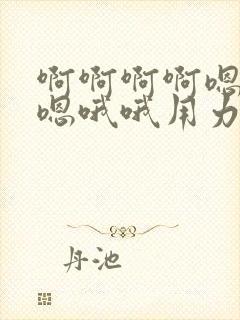 啊啊啊啊嗯
嗯哦哦用力
丹池